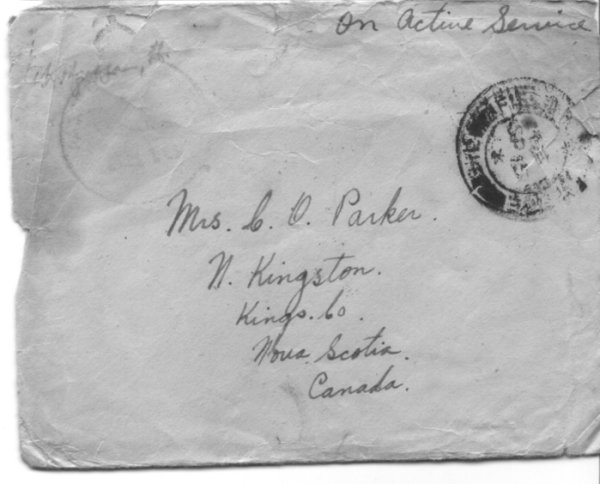 On Active Service
FIEL
Mrs. C. O. Parker.
N. Kingston.
Kings. Co.
Nova Scotia.
Canada.